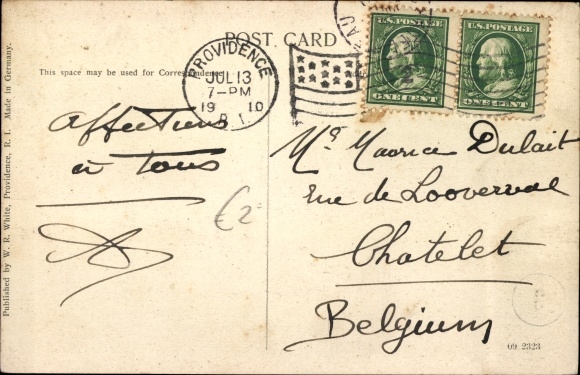 POST CARD
This space may be used for Correspondence
PROVIDENCE
JUL 13
7-PM
1910
R.I.
U.S. POSTAGE
ONE CENT
U.S. POSTAGE
ONE CENT
Affections
à tous
€2
Mr Maurice Dulait
Rue de Looverval
Chatelet
Belgium
09 2323
Published by W. R. White, Providence, R. I. Made in Germany.